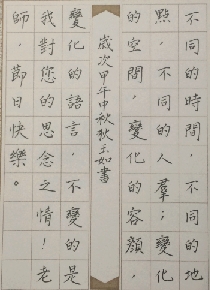 不同的時間，不同的地
點，不同的人羣；變化
的空間，變化的容顏，
歲次甲午中秋狄玉如書
變化的語言，不變的是
我對您的思念之情！老
師，節日快樂。